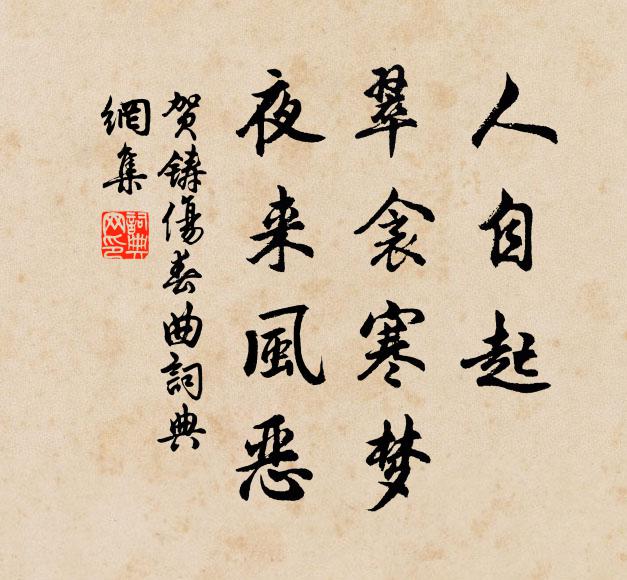 人自起
翠衾寒梦
夜来風恶
贺鑄傷春曲詞典
網集
詞典
网印